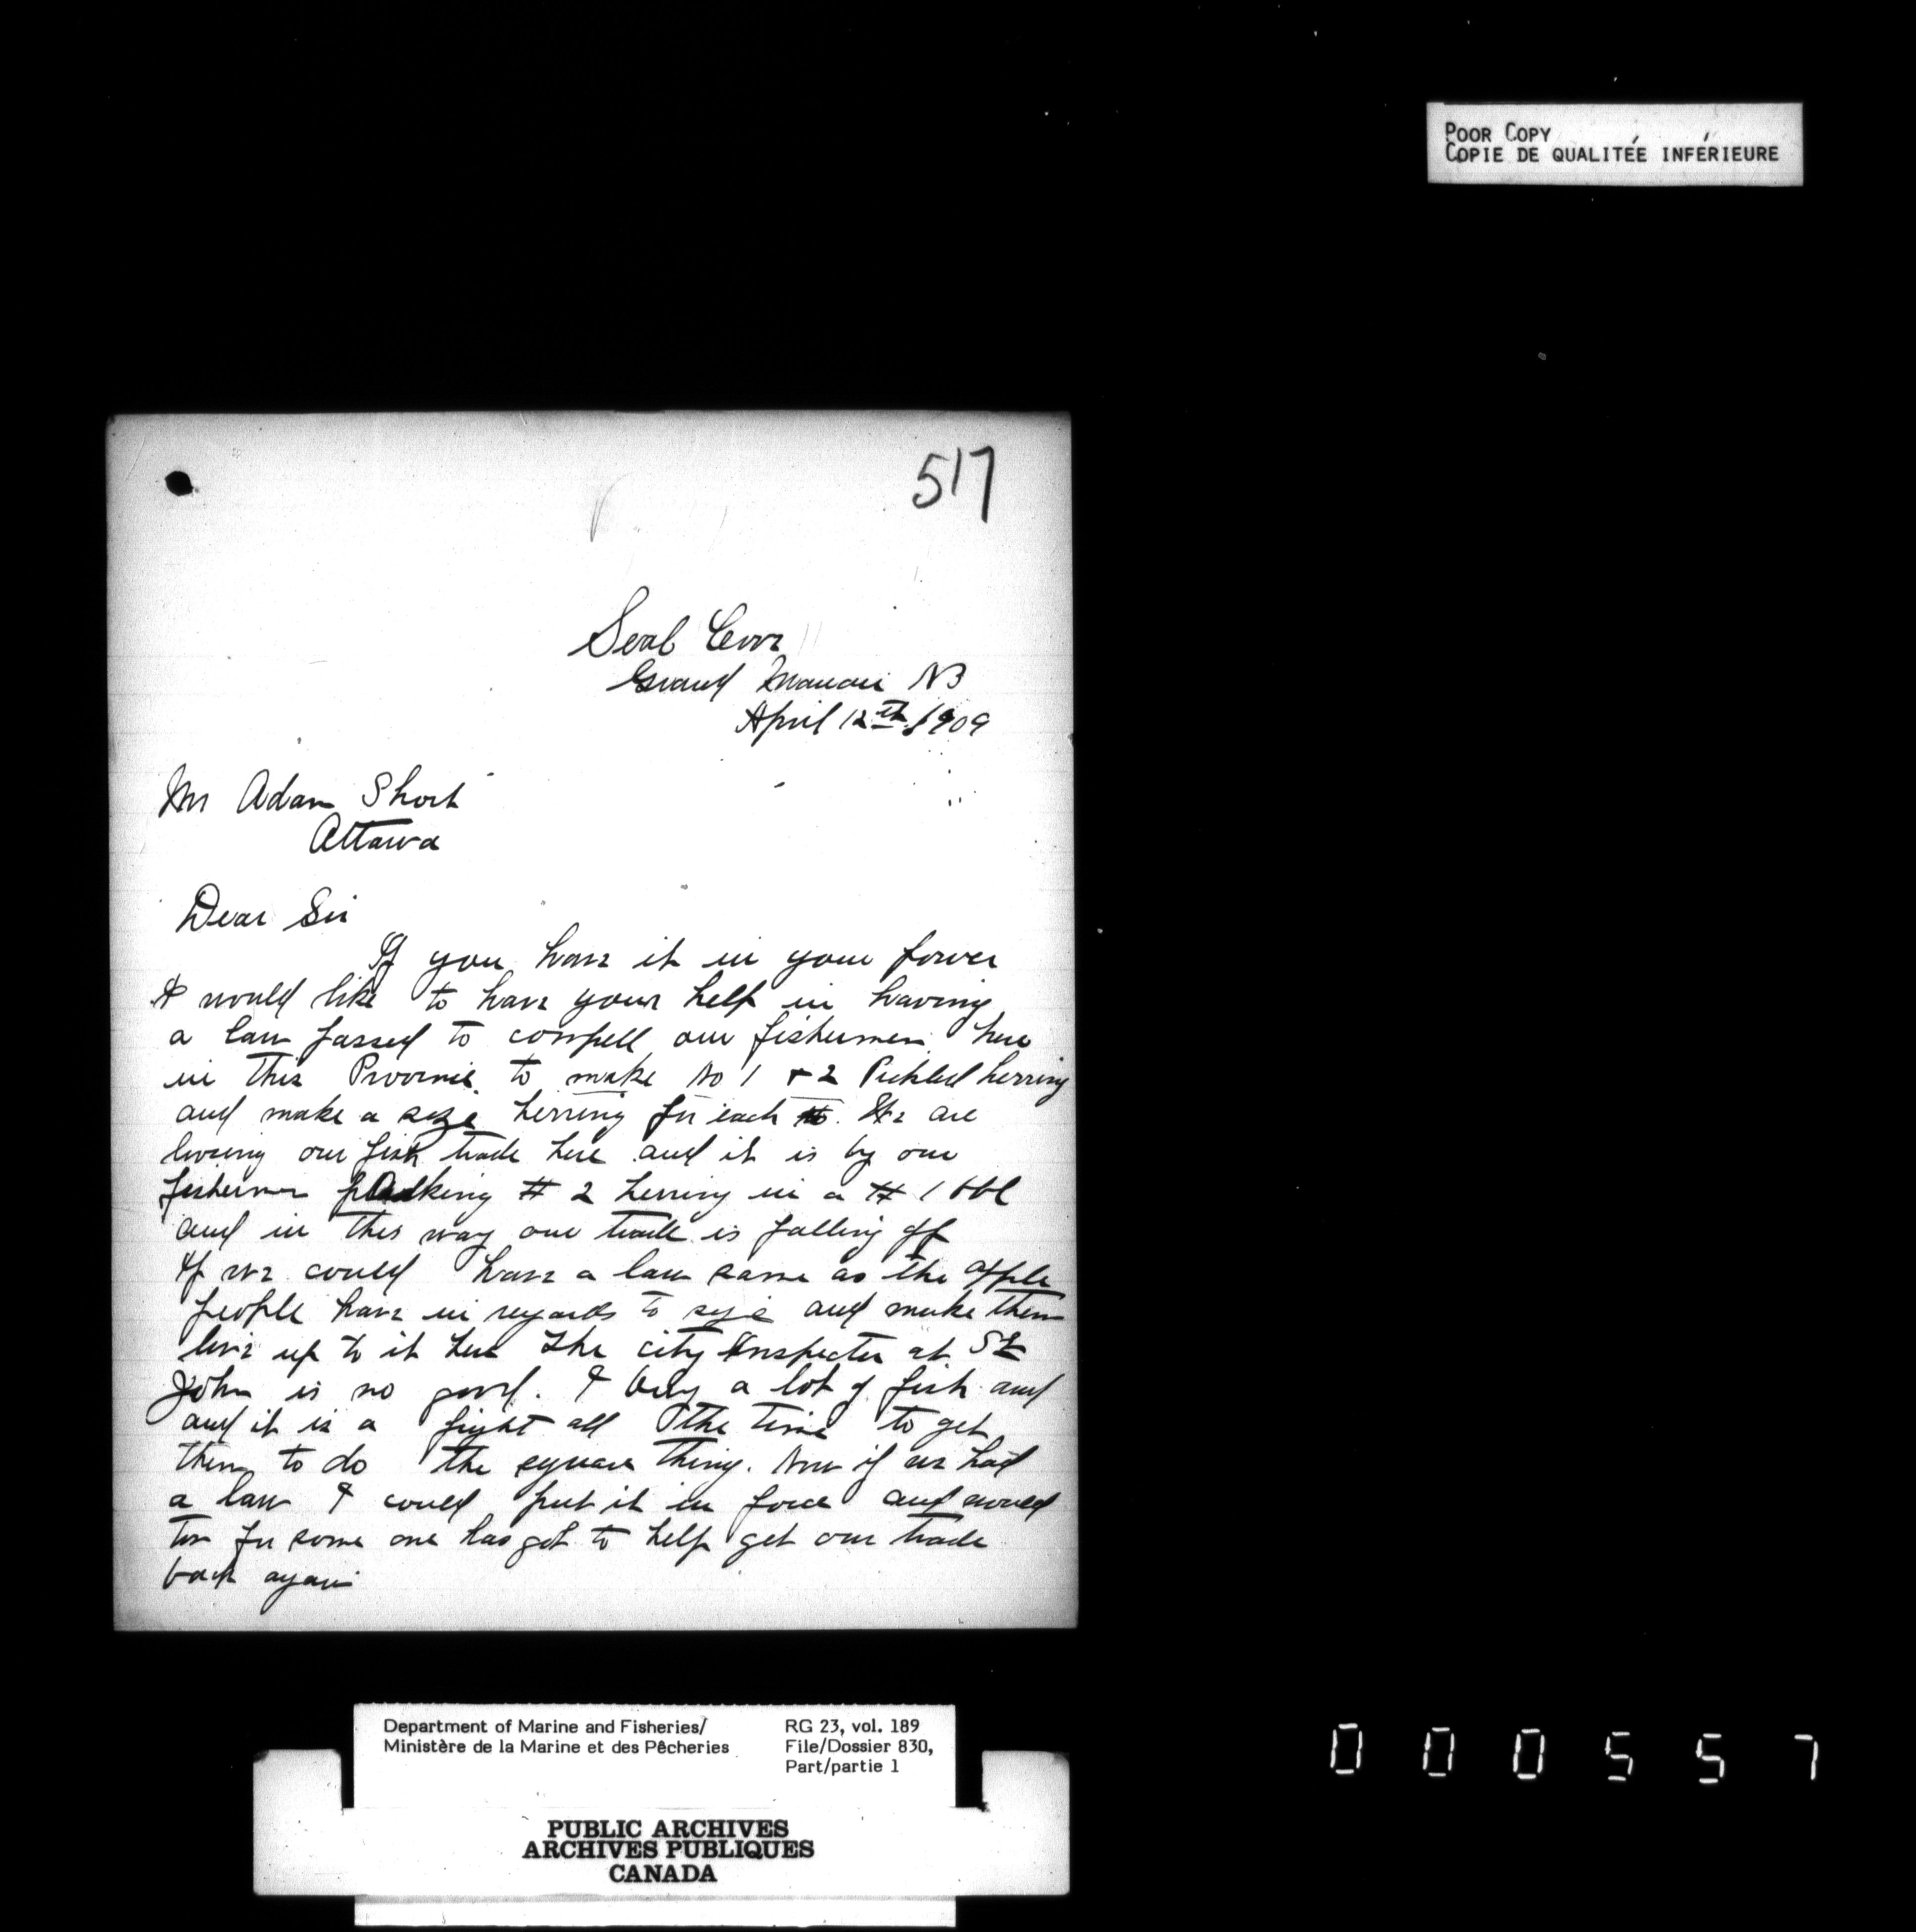 POOR COPY
COPIE DE QUALITÉE INFÉRIEURE
517
Seal Cove
Grand Manan NB
April 12th 1909
Mr Adam Short
Ottawa
Dear Sir
If you have it in your power
I would like to have your help in having
a law passed to compell our fishermen here
in this Province to make No 1 + 2 Pickled herring
and make a size herring for each #. We are
loosing our fish trade here and it is by our
fishermen packing # 2 herring in a # 1 bbl
and in this way our trade is falling off
If we could have a law same as the apple
people have in regards to size and make them
live up to it here the city Inspecter at St
John is no good. I buy a lot of fish and
and it is a fight all the time to get
them to do the square thing. Now if we had
a law I could put it in force and would
too for some one has got to help get our trade
back again
Department of Marine and Fisheries/
Ministère de la Marine et des Pêcheries
RG 23, vol. 189
File/Dossier 830,
Part/partie 1
PUBLIC ARCHIVES
ARCHIVES PUBLIQUES
CANADA
000557